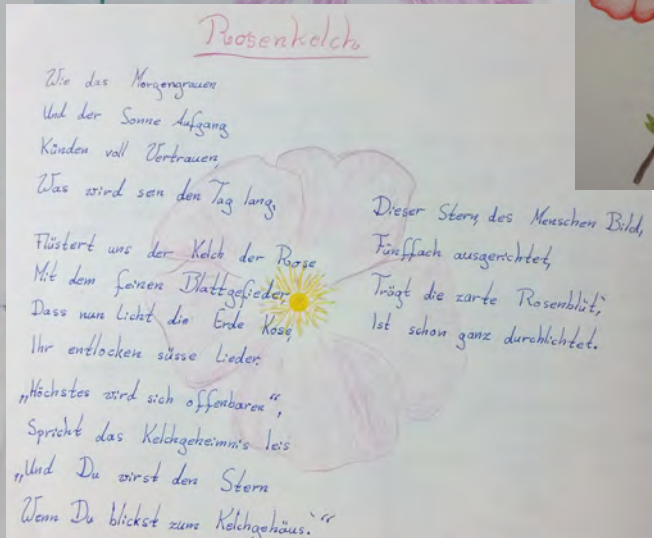 Rosenkelch
Wie das Morgengrauen
Und der Sonne Aufgang
Künden voll Vertrauen,
Was wird sen den Tag lang,
Flüstert uns der Kelch der Rose
Mit dem feinen Blattgefieder,
Dass nun Licht die Erde Kose,
Ihr entlocken süsse Lieder.
„Höchstes wird sich offenbaren“,
Spricht das Kelchgeheimnis leis
„Und Du wirst den Stern
Wenn Du blickst zum Kelchgehäus.“
Dieser Stern, des Menschen Bild,
Fünffach ausgerichtet,
Trägt die zarte Rosenblüt‘,
Ist schon ganz durchlichtet.